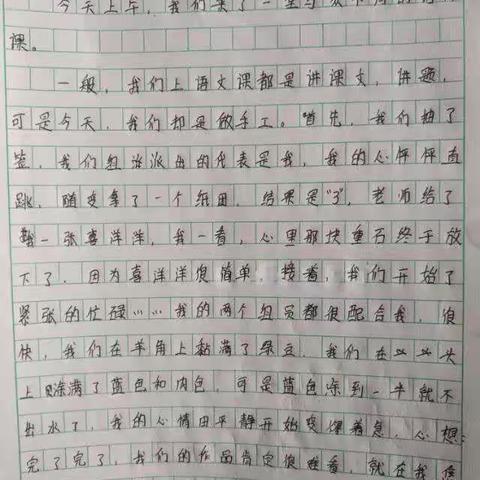 今天上午，我们来了一堂与众不同的
课。
一般，我们上语文课都是讲课文，讲题，
可是今天，我们却是做手工。首先，我们抽了
签，我们组派出的代表是我，我的心怦怦直
跳，随变拿了一个纸团，结果是“3”，老师给了
我一张喜洋洋，我一看，心里那块重石终于放
下了，因为喜洋洋很简单，接着，我们开始了
紧张的忙碌……我的两个组员都很配合我，很
快，我们在羊角上黏满了绿豆，我们在头
上涂满了蓝色和肉色，可是蓝色涂到一半就不
出水了，我的心情由平静开始变得着急，心想：
完了完了，我们的作品肯定很难看，就在我